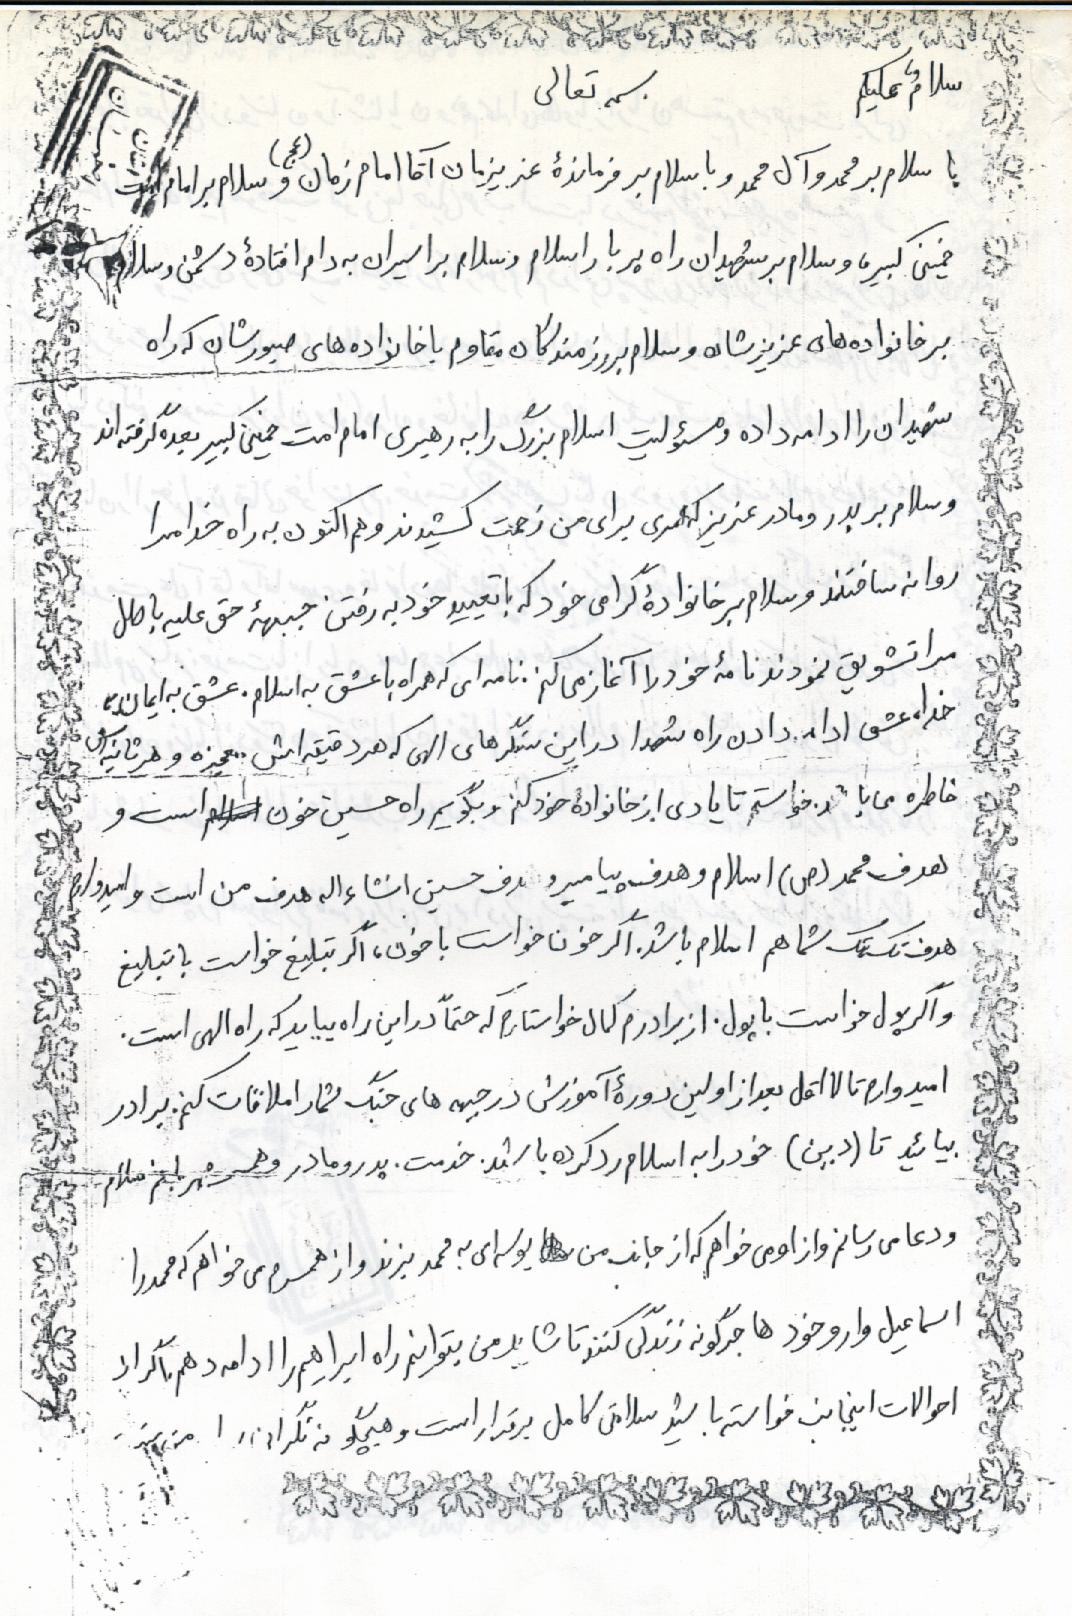 سلام علیکم
بسمه تعالی
با سلام بر محمد و آل محمد و با سلام بر فرماندهٔ عزیزمان آقا امام زمان (عج) و سلام بر امام امت
خمینی کبیر، و سلام بر شهیدان راه پر بار اسلام و سلام بر اسیران به دام افتادهٔ دشمن و سلام
بر خانواده های عزیزشان و سلام بر رزمندگان مقاوم با خانواده های صبورشان که راه
شهیدان را ادامه داده و مسئولیت اسلام بزرگ را به رهبری امام امت خمینی کبیر بعهده گرفته اند
و سلام بر پدر و مادر عزیز که عمری برای من زحمت کشیدند و هم اکنون به راه خدا مرا
روانه ساختند و سلام بر خانوادهٔ گرامی خود که با تعیید خود به رفتن جبههٔ حق علیه باطل
مرا تشویق نمودند نامهٔ خود را آغاز می کنم. نامه ای که همراه با عشق به اسلام. عشق به ایمان به
خدا، عشق ادامه دادن راه شهدا در این سنگرهای الهی که هر دقیقه اش معجزه و هر ثانیه اش
خاطره می باشد. خواستم تا یادی از خانوادهٔ خود کنم و بگویم راه حسین خون است و
هدف محمد (ص) اسلام و هدف پیامبر و هدف حسین انشاءاله هدف من است و امیدوارم
هدف تک تک شما هم اسلام باشد. اگر خون خواست با خون، اگر تبلیغ خواست با تبلیغ
و اگر پول خواست با پول. از برادرم کمال خواستارم که حتماً در این راه بیاید که راه الهی است.
امیدوارم تا لااقل بعد از اولین دورهٔ آموزش در جبهه های جنگ شما را ملاقات کنم. برادر
بیائید تا (دین) خود را به اسلام رد کرده باشید. خدمت پدر و مادر و سلام
و دعا می رسانم و از او می خواهم که از جانب من بوسه ای به محمد بزند و از همسرم می خواهم که محمد را
اسماعیل وار و خود هاجر گونه زندگی کنند تا شاید من بتوانم راه ابراهیم را ادامه دهم. اگر از
احوالات اینجانب خواسته باشید سلامتی کامل برقرار است و هیچگونه نگران